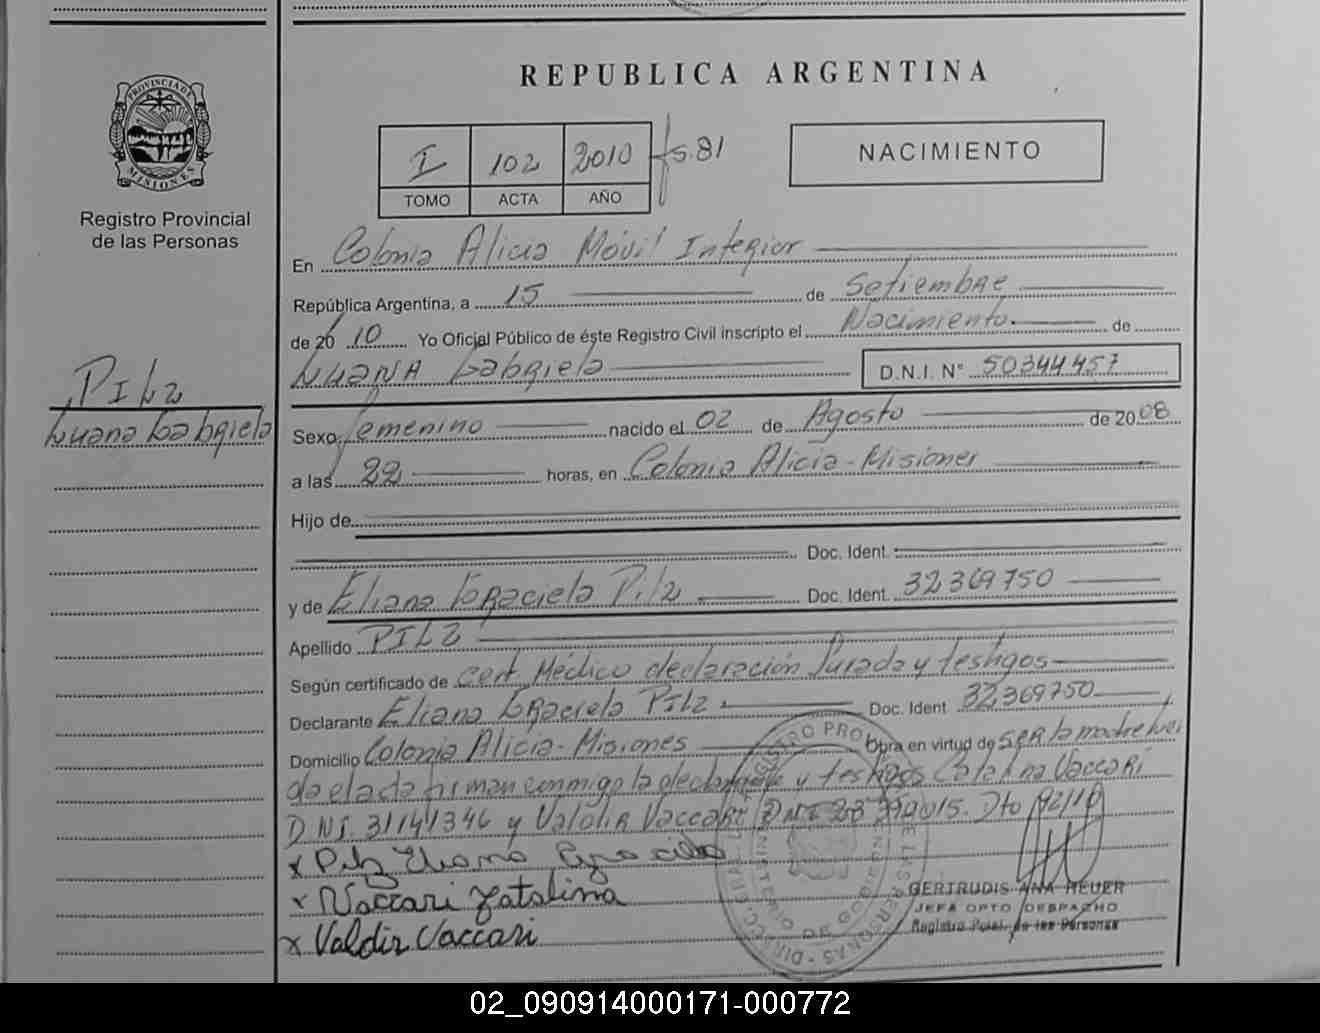 REPUBLICA ARGENTINA
PROVINCIA DE
MISIONES
Registro Provincial
de las Personas
I 102 2010 fs. 81
TOMO ACTA AÑO
NACIMIENTO
En Colonia Alicia Móvil Interior
República Argentina, a 15 de Setiembre
de 20 10 Yo Oficial Público de éste Registro Civil inscripto el Nacimiento de
Luana Gabriela D.N.I. Nº 50344457
PILZ
Luana Gabriela
Sexo femenino nacido el 02 de Agosto de 2008
a las 22 horas, en Colonia Alicia - Misiones
Hijo de
Doc. Ident.
y de Eliana Graciela Pilz Doc. Ident. 32369750
Apellido PILZ
Según certificado de Cert. Médico declaración Jurada y testigos
Declarante Eliana Graciela Pilz Doc. Ident 32369750
Domicilio Colonia Alicia - Misiones Obra en virtud de ser la madre Lei
da el acta firman conmigo la declarante y testigos Catalina Vaccari
D.N.I. 31141346 y Valdir Vaccari D.N.I. Dto 92/10
x Pilz Eliana Graciela
x Vaccari Catalina
x Valdir Vaccari
GERTRUDIS ANA HEUER
JEFA DPTO DESPACHO
Registro Pcial. de las Personas
02_090914000171-000772